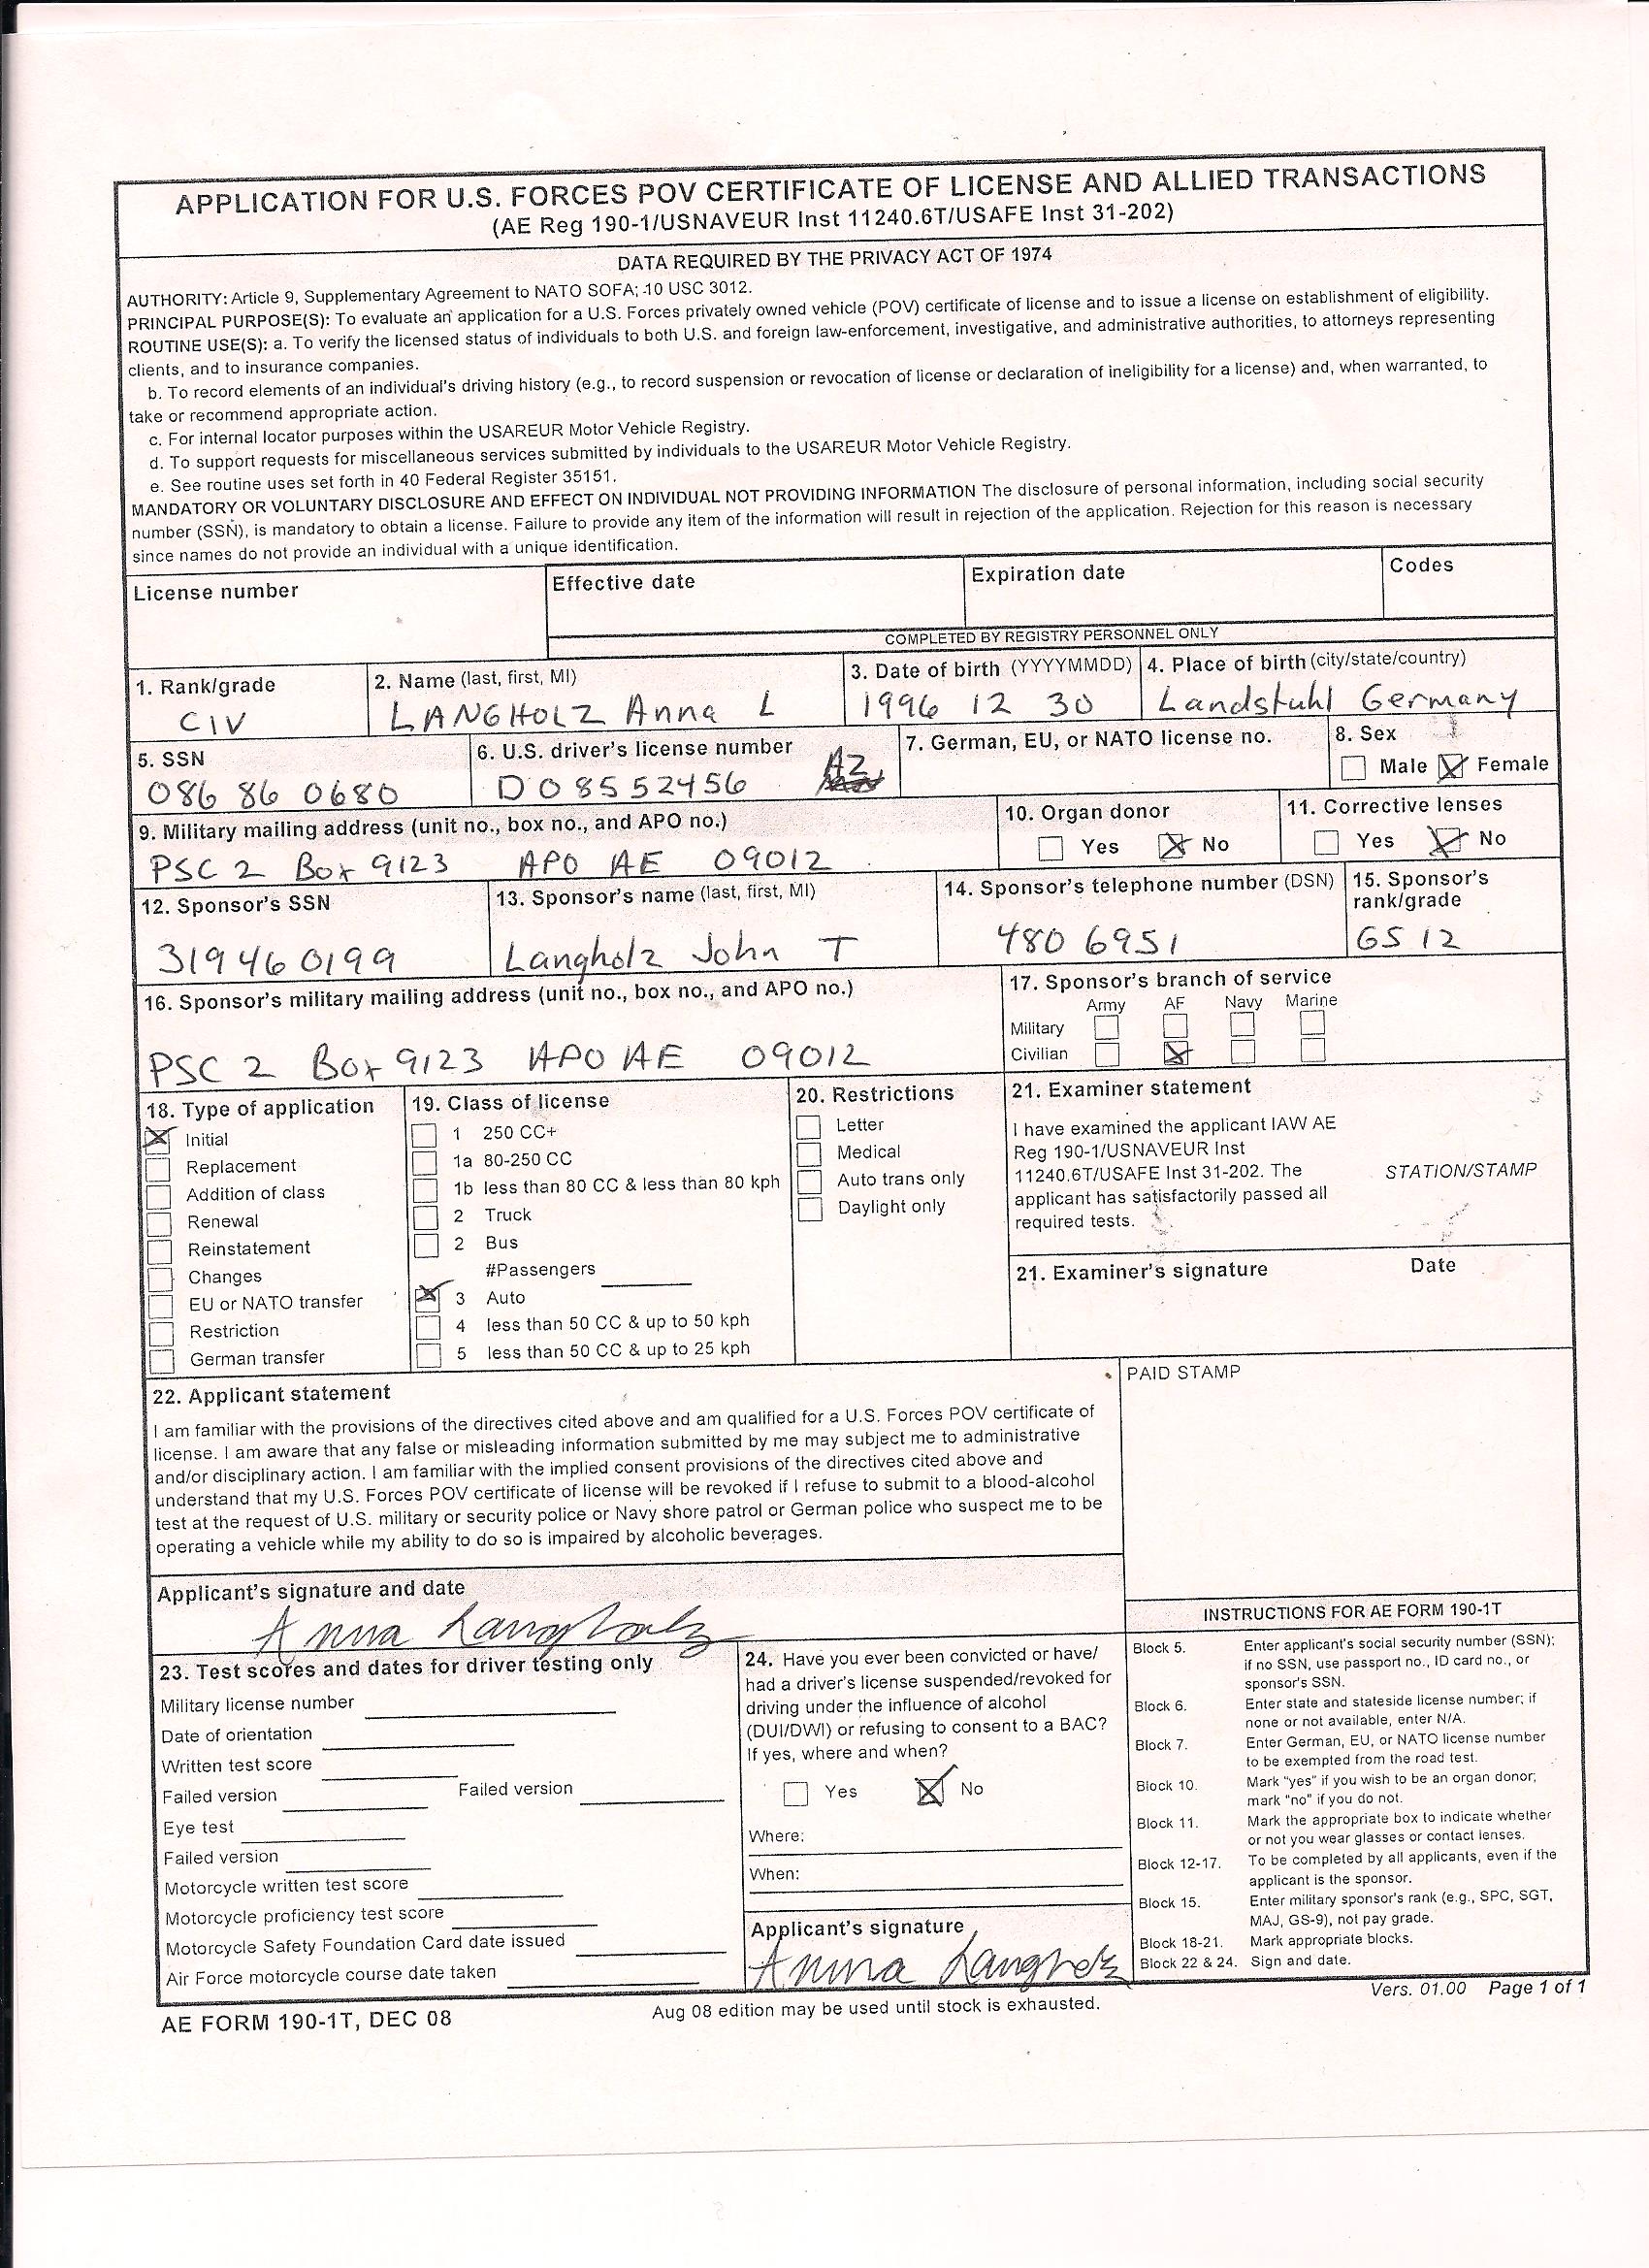 APPLICATION FOR U.S. FORCES POV CERTIFICATE OF LICENSE AND ALLIED TRANSACTIONS
(AE Reg 190-1/USNAVEUR Inst 11240.6T/USAFE Inst 31-202)
DATA REQUIRED BY THE PRIVACY ACT OF 1974
AUTHORITY: Article 9, Supplementary Agreement to NATO SOFA; 10 USC 3012.
PRINCIPAL PURPOSE(S): To evaluate an application for a U.S. Forces privately owned vehicle (POV) certificate of license and to issue a license on establishment of eligibility.
ROUTINE USE(S): a. To verify the licensed status of individuals to both U.S. and foreign law-enforcement, investigative, and administrative authorities, to attorneys representing
clients, and to insurance companies.
b. To record elements of an individual's driving history (e.g., to record suspension or revocation of license or declaration of ineligibility for a license) and, when warranted, to
take or recommend appropriate action.
c. For internal locator purposes within the USAREUR Motor Vehicle Registry.
d. To support requests for miscellaneous services submitted by individuals to the USAREUR Motor Vehicle Registry.
e. See routine uses set forth in 40 Federal Register 35151.
MANDATORY OR VOLUNTARY DISCLOSURE AND EFFECT ON INDIVIDUAL NOT PROVIDING INFORMATION The disclosure of personal information, including social security
number (SSN), is mandatory to obtain a license. Failure to provide any item of the information will result in rejection of the application. Rejection for this reason is necessary
since names do not provide an individual with a unique identification.
License number
Effective date
Expiration date
Codes
COMPLETED BY REGISTRY PERSONNEL ONLY
1. Rank/grade
CIV
2. Name (last, first, MI)
LANGHOLZ Anna L
3. Date of birth (YYYYMMDD)
1996 12 30
4. Place of birth (city/state/country)
Landstuhl Germany
5. SSN
086 86 0680
6. U.S. driver's license number
D08552456 AZ
7. German, EU, or NATO license no.
8. Sex
Male Female
9. Military mailing address (unit no., box no., and APO no.)
PSC 2 Box 9123 APO AE 09012
10. Organ donor
Yes No
11. Corrective lenses
Yes No
12. Sponsor's SSN
319460199
13. Sponsor's name (last, first, MI)
Langholz John T
14. Sponsor's telephone number (DSN)
480 6951
15. Sponsor's
rank/grade
GS 12
16. Sponsor's military mailing address (unit no., box no., and APO no.)
PSC 2 Box 9123 APO AE 09012
17. Sponsor's branch of service
Army AF Navy Marine
Military
Civilian
18. Type of application
Initial
Replacement
Addition of class
Renewal
Reinstatement
Changes
EU or NATO transfer
Restriction
German transfer
19. Class of license
1 250 CC+
1a 80-250 CC
1b less than 80 CC & less than 80 kph
2 Truck
2 Bus
#Passengers
3 Auto
4 less than 50 CC & up to 50 kph
5 less than 50 CC & up to 25 kph
20. Restrictions
Letter
Medical
Auto trans only
Daylight only
21. Examiner statement
I have examined the applicant IAW AE
Reg 190-1/USNAVEUR Inst
11240.6T/USAFE Inst 31-202. The
applicant has satisfactorily passed all
required tests.
STATION/STAMP
21. Examiner's signature Date
22. Applicant statement
I am familiar with the provisions of the directives cited above and am qualified for a U.S. Forces POV certificate of
license. I am aware that any false or misleading information submitted by me may subject me to administrative
and/or disciplinary action. I am familiar with the implied consent provisions of the directives cited above and
understand that my U.S. Forces POV certificate of license will be revoked if I refuse to submit to a blood-alcohol
test at the request of U.S. military or security police or Navy shore patrol or German police who suspect me to be
operating a vehicle while my ability to do so is impaired by alcoholic beverages.
PAID STAMP
Applicant's signature and date
Anna Langholz
23. Test scores and dates for driver testing only
Military license number
Date of orientation
Written test score
Failed version Failed version
Eye test
Failed version
Motorcycle written test score
Motorcycle proficiency test score
Motorcycle Safety Foundation Card date issued
Air Force motorcycle course date taken
24. Have you ever been convicted or have/
had a driver's license suspended/revoked for
driving under the influence of alcohol
(DUI/DWI) or refusing to consent to a BAC?
If yes, where and when?
Yes No
Where:
When:
Applicant's signature
Anna Langholz
INSTRUCTIONS FOR AE FORM 190-1T
Block 5. Enter applicant's social security number (SSN);
if no SSN, use passport no., ID card no., or
sponsor's SSN.
Block 6. Enter state and stateside license number; if
none or not available, enter N/A.
Block 7. Enter German, EU, or NATO license number
to be exempted from the road test.
Block 10. Mark "yes" if you wish to be an organ donor;
mark "no" if you do not.
Block 11. Mark the appropriate box to indicate whether
or not you wear glasses or contact lenses.
Block 12-17. To be completed by all applicants, even if the
applicant is the sponsor.
Block 15. Enter military sponsor's rank (e.g., SPC, SGT,
MAJ, GS-9), not pay grade.
Block 18-21. Mark appropriate blocks.
Block 22 & 24. Sign and date.
AE FORM 190-1T, DEC 08
Aug 08 edition may be used until stock is exhausted.
Vers. 01.00 Page 1 of 1